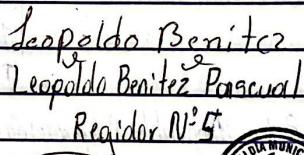 Leopoldo Benitez
Leopoldo Benitez Pascual
Regidor N° 5